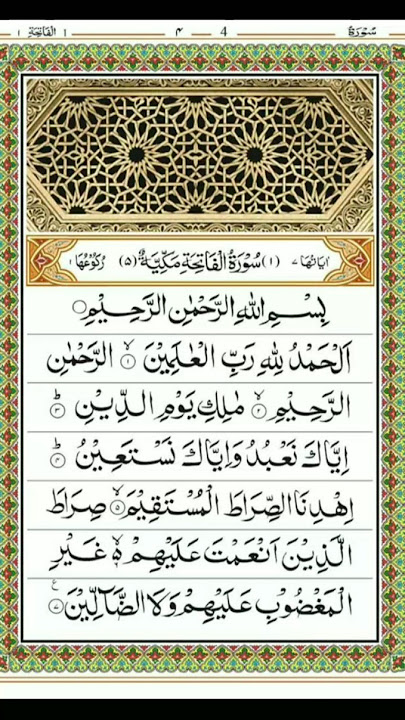 الفاتحة ١ ٤ 4 سُوْرَةُ
اٰیَاتُهَا ٧ (١) سُوْرَةُ الْفَاتِحَةِ مَكِّیَّةٌ (٥) رُكُوْعُهَا ١
بِسْمِ اللّٰهِ الرَّحْمٰنِ الرَّحِیْمِ
اَلْحَمْدُ لِلّٰهِ رَبِّ الْعٰلَمِیْنَ ۙ﴿١﴾ الرَّحْمٰنِ
الرَّحِیْمِ ۙ﴿٢﴾ مٰلِكِ یَوْمِ الدِّیْنِ ؕ﴿٣﴾
اِیَّاكَ نَعْبُدُ وَاِیَّاكَ نَسْتَعِیْنُ ؕ﴿٤﴾
اِهْدِنَا الصِّرَاطَ الْمُسْتَقِیْمَ ۙ﴿٥﴾ صِرَاطَ
الَّذِیْنَ اَنْعَمْتَ عَلَیْهِمْ ۙ۬ۦ غَیْرِ
الْمَغْضُوْبِ عَلَیْهِمْ وَلَا الضَّآلِّیْنَ ﴿٧﴾